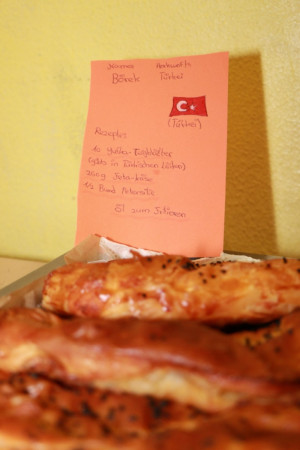 Name Herkunft
Börek Türkei
(Türkei)
Rezept:
10 Yufka-Teigblätter
(gibts in Türkischen Läden)
300g Feta-käse
1/2 Bund Petersilie
Öl zum